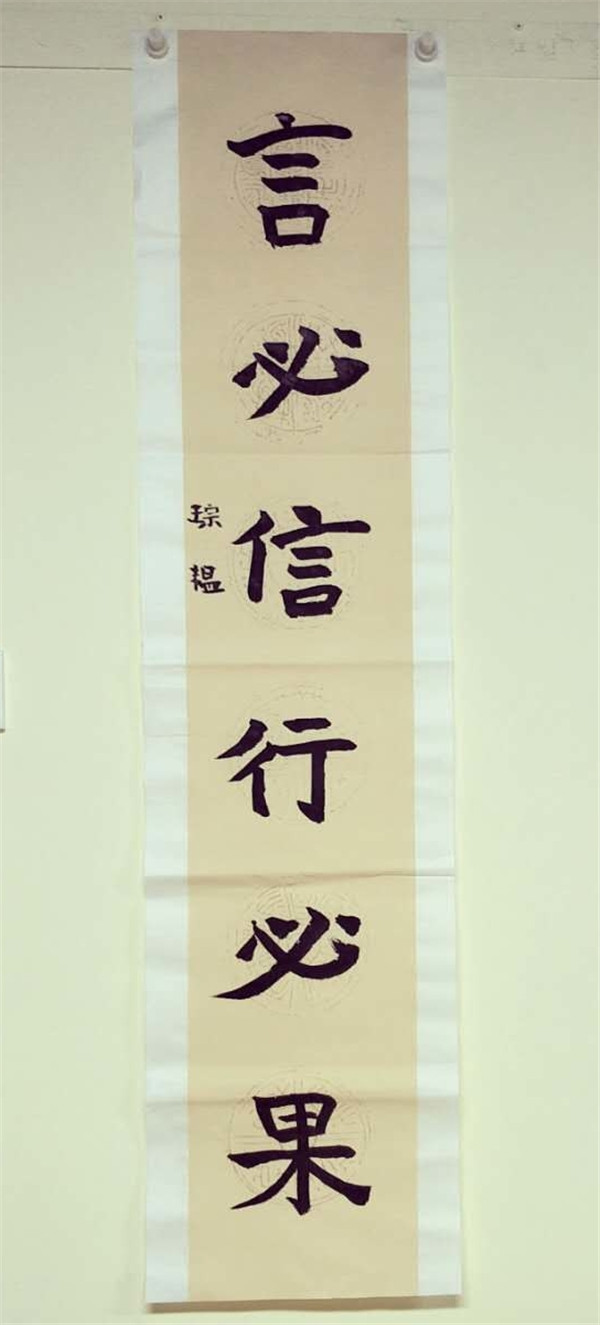 言必信行必果
琮韫